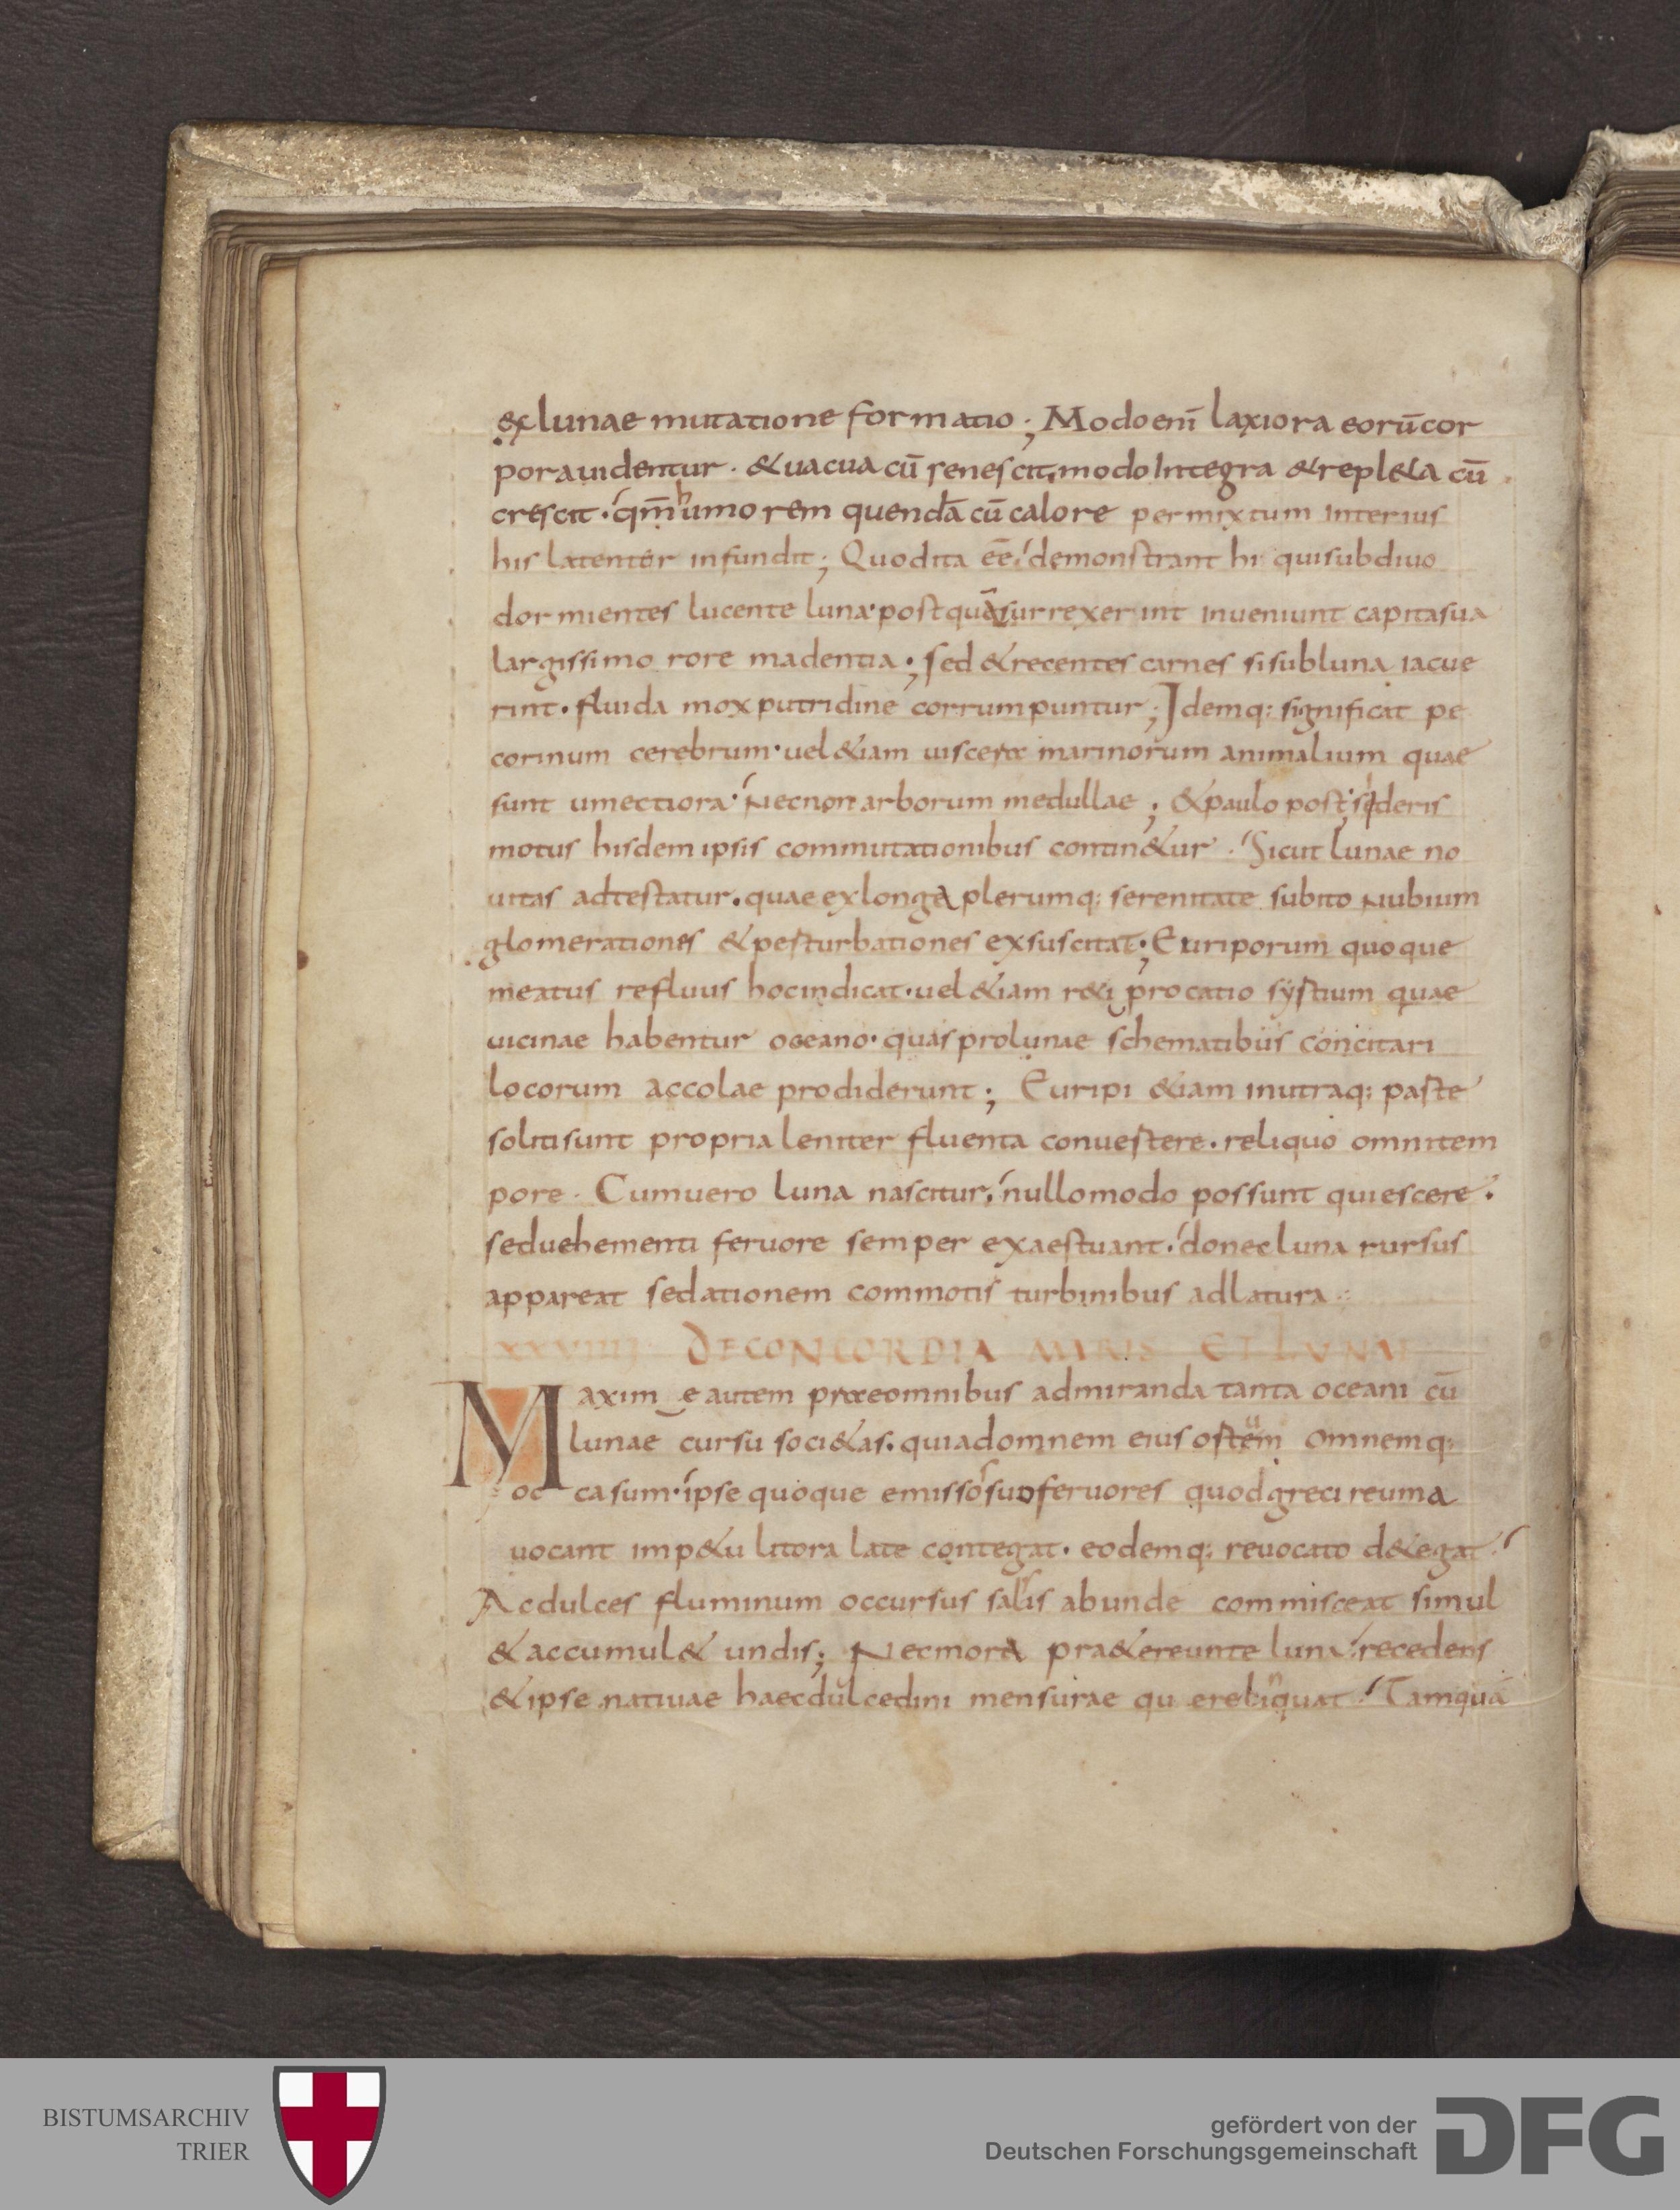 ex lunae mutatione formatio; Modo enī laxiora eorū cor
pora uidentur. & uacua cū senescit, modo integra & repl&a cū
crescit. qm̄ humorem quendā cū calore permixtum interius
his latenter infundit; Quod ita eē. demonstrant hi qui sub diuo
dormientes lucente luna. postquā surrexerint inueniunt capita sua
largissimo rore madentia; sed & recentes carnes si sub luna iacue
rint. fluida mox putridine corrumpuntur; Idemq: significat pe
corinum cerebrum. uel &iam uiscera marinorum animalium quae
sunt umectiora. Necnon arborum medullae; & paulo post; sideris
motus hisdem ipsis commutationibus contin&ur. Sicut lunae no
uitas adtestatur. quae ex longa plerumq: serenitate subito nubium
glomerationes & perturbationes exsuscitat; Euriporum quoque
meatus refluus hoc indicat. uel &iam r&i procatio systium quae
uicinae habentur oceano. quas pro lunae schematibus concitari
locorum accolae prodiderunt; Euripi &iam in utraq: parte
soliti sunt propria leniter fluenta conuertere. reliquo omni tem
pore. Cum uero luna nascitur, nullo modo possunt quiescere.
sed uehementi feruore semper exaestuant. donec luna rursus
appareat sedationem commotis turbinibus adlatura
XXVIIII DE CONCORDIA MARIS ET LUNAE
Maxime autem prae omnibus admiranda tanta oceani cū
lunae cursu soci&as. quia ad omnem eius ortum omnemq:
oc casum. ipse quoque emisso suo feruores quod greci reuma
uocant imp&u litora late contegat. eodemq: reuocato d&egat.
Ac dulces fluminum occursus salsis abunde commisceat simul
& accumul& undis; Nec mora pra&ereunte luna. recedens
& ipse natiuae haec dulcedini mensurae qu erelinquat. Tamquā
BISTUMSARCHIV
TRIER
gefördert von der
Deutschen Forschungsgemeinschaft
DFG